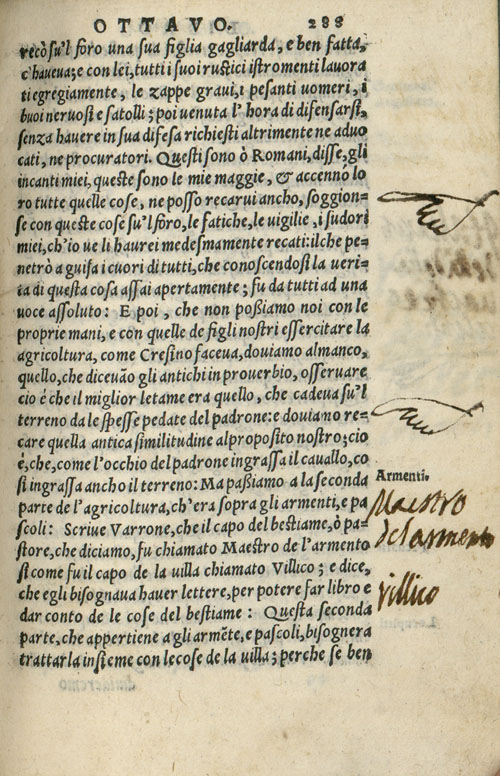 OTTAVO. 289
recò su'l foro una sua figlia gagliarda, e ben fatta,
c'haueua; e con lei, tutti i suoi rustici istromenti lauora
ti egregiamente, le zappe graui, i pesanti uomeri, i
buoi neruosi e satolli; poi uenuta l'hora di difensarsi,
senza hauere in sua difesa richiesti altrimente ne aduo
cati, ne procuratori. Questi sono ò Romani, disse, gli
incanti miei, queste sono le mie maggie, & accennò lo
ro tutte quelle cose, ne posso recarui ancho, soggion=
se con queste cose su'l foro, le fatiche, le uigilie, i sudori
miei, ch'io ue li haurei medesmamente recati: ilche pe=
netrò a guisa i cuori di tutti, che conoscendosi la ueri=
tà di questa cosa assai apertamente; fu da tutti ad una
uoce assoluto: E poi, che non possiamo noi con le
proprie mani, e con quelle de figli nostri essercitare la
agricoltura, come Cresino faceua, douiamo almanco,
quello, che diceuão gli antichi in prouerbio, osseruare
cio é che il miglior letame era quello, che cadeua su'l
terreno da le spesse pedate del padrone: e douiamo re=
care quella antica similitudine al proposito nostro; cio
é, che, come l'occhio del padrone ingrassa il cauallo, co
si ingrassa ancho il terreno: Ma passiamo a la seconda
parte de l'agricoltura, ch'era sopra gli armenti, e pa
scoli: Scriue Varrone, che il capo del bestiame, ò pa=
store, che diciamo, fu chiamato Maestro de l'armento
si come fu il capo de la uilla chiamato Villico; e dice,
che egli bisognaua hauer lettere, per potere far libro e
dar conto de le cose del bestiame: Questa seconda
parte, che appertiene a gli armẽte, e pascoli, bisognera
trattarla insieme con le cose de la uilla; perche se ben
Armenti.
Maestro
del armento
Villico